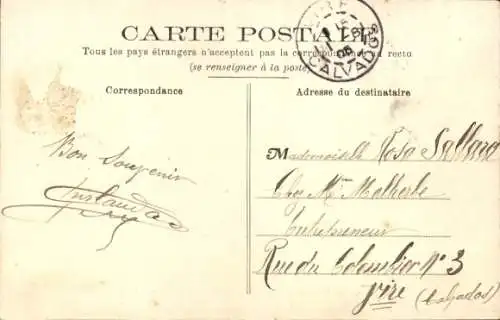 CARTE POSTALE
Tous les pays étrangers n'acceptent pas la correspondance au recto
(se renseigner à la poste)
VIRE
CALVADOS
Correspondance
Adresse du destinataire
Bon Souvenir
Mademoiselle Rosa
Chez Mr Malherbe
Entrepreneur
Rue du Colombier N° 3
Vire (Calvados)